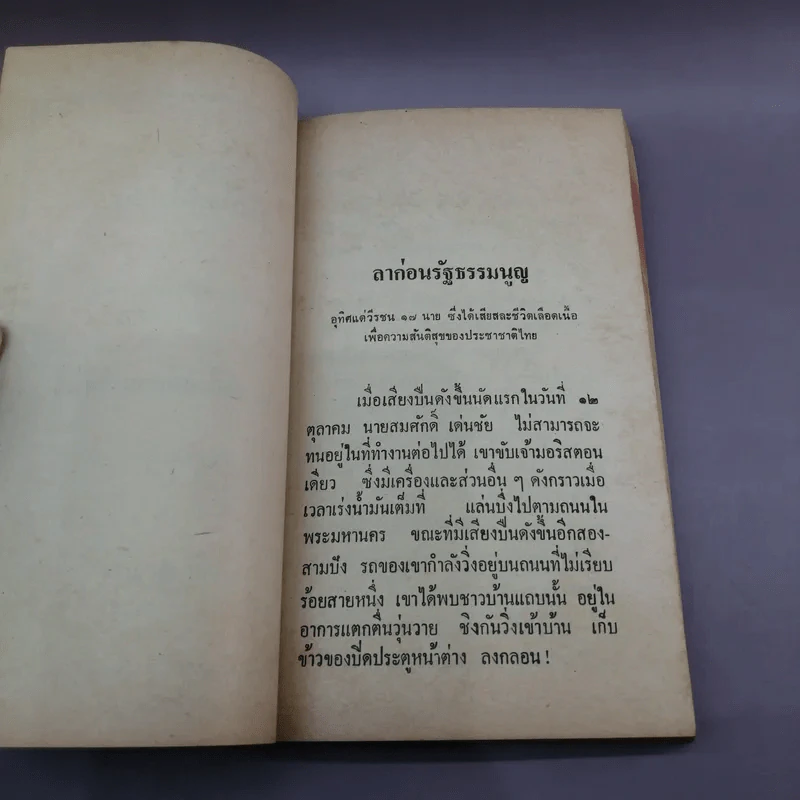 ลาก่อนรัฐธรรมนูญ
อุทิศแด่วีรชน ๑๗ นาย ซึ่งได้เสียสละชีวิตเลือดเนื้อ
เพื่อความสันติสุขของประชาชาติไทย
เมื่อเสียงปืนดังขึ้นนัดแรกในวันที่ ๑๒
ตุลาคม นายสมศักดิ์ เด่นชัย ไม่สามารถจะ
ทนอยู่ในที่ทำงานต่อไปได้ เขาขับเจ้ามอริสตอน
เดียว ซึ่งมีเครื่องและส่วนอื่น ๆ ดังกราวเมื่อ
เวลาเร่งน้ำมันเต็มที่ แล่นบึ่งไปตามถนนใน
พระมหานคร ขณะที่มีเสียงปืนดังขึ้นอีกสอง-
สามปัง รถของเขากำลังวิ่งอยู่บนถนนที่ไม่เรียบ
ร้อยสายหนึ่ง เขาได้พบชาวบ้านแถบนั้น อยู่ใน
อาการแตกตื่นวุ่นวาย ชิงกันวิ่งเข้าบ้าน เก็บ
ข้าวของปิดประตูหน้าต่าง ลงกลอน !